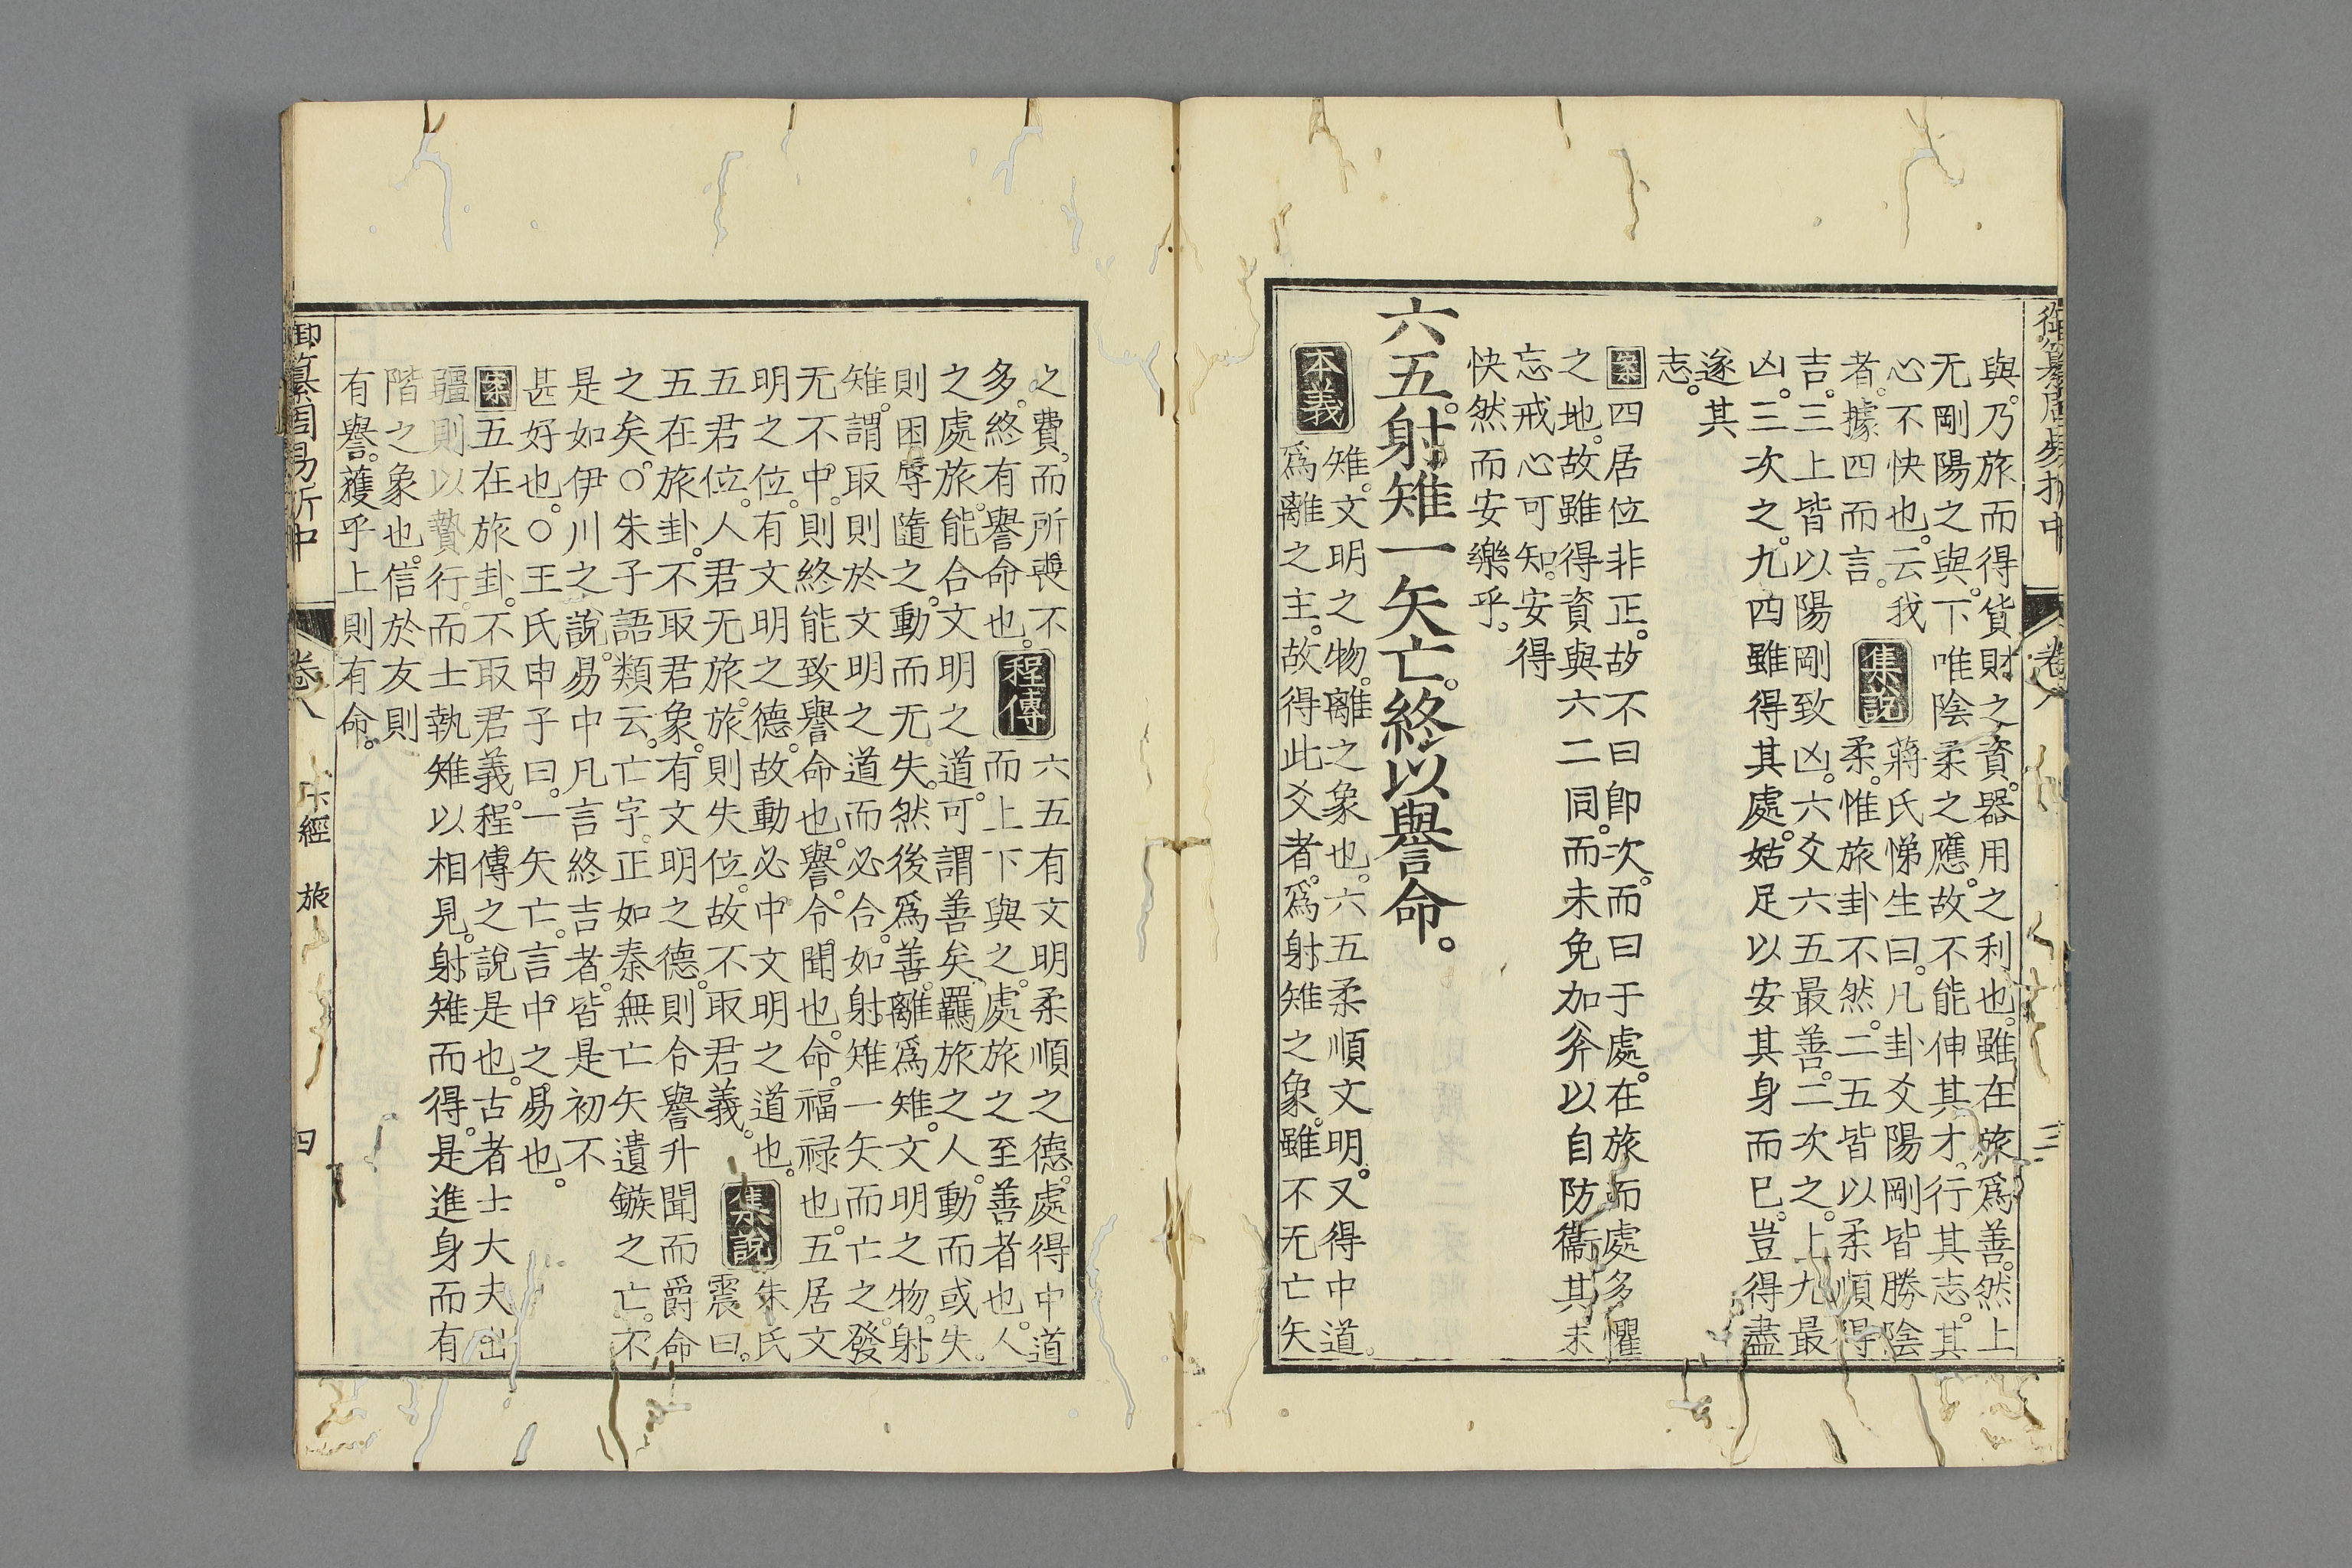 御纂周易折中 卷八 三
與。乃旅而得貨財之資。器用之利也。雖在旅爲善。然上
无剛陽之與。下唯陰柔之應。故不能伸其才。行其志。其
心不快也。云我
者。據四而言。
集說
蔣氏悌生曰。凡卦爻陽剛皆勝陰
柔。惟旅卦不然。二五皆以柔順得
吉。三上皆以陽剛致凶。六爻六五最善。二次之。上九最
凶。三次之。九四雖得其處。姑足以安其身而已。豈得盡
遂其
志。
案 四居位非正。故不曰卽次。而曰于處。在旅而處多懼
之地。故雖得資與六二同。而未免加斧以自防衞。其未
忘戒心可知。安得
快然而安樂乎。
六五。射雉一矢亡。終以譽命。
本義
雉。文明之物。離之象也。六五柔順文明。又得中道。
爲離之主。故得此爻者。爲射雉之象。雖不无亡矢
之費。而所喪不
多。終有譽命也。
程傳
六五有文明柔順之德。處得中道
而上下與之。處旅之至善者也。人
之處旅。能合文明之道。可謂善矣。羈旅之人。動而或失。
則困辱隨之。動而无失。然後爲善。離爲雉。文明之物。射
雉。謂取則於文明之道而必合。如射雉一矢而亡之。發
无不中。則終能致譽命也。譽。令聞也。命。福祿也。五居文
明之位。有文明之德。故動必中文明之道也。
五君位。人君无旅。旅則失位。故不取君義。
集說
朱氏
震曰。
五在旅卦。不取君象。有文明之德。則令譽升聞而爵命
之矣。○朱子語類云。亡字。正如秦無亡矢遺鏃之亡。不
是如伊川之說。易中凡言終吉者。皆是初不
甚好也。○王氏申子曰。一矢亡。言中之易也。
案 五在旅卦。不取君義。程傳之說是也。古者士大夫出
疆則以贄行。而士執雉以相見。射雉而得。是進身而有
階之象也。信於友則
有譽。獲乎上則有命。
御纂周易折中 卷八 下經 旅 四